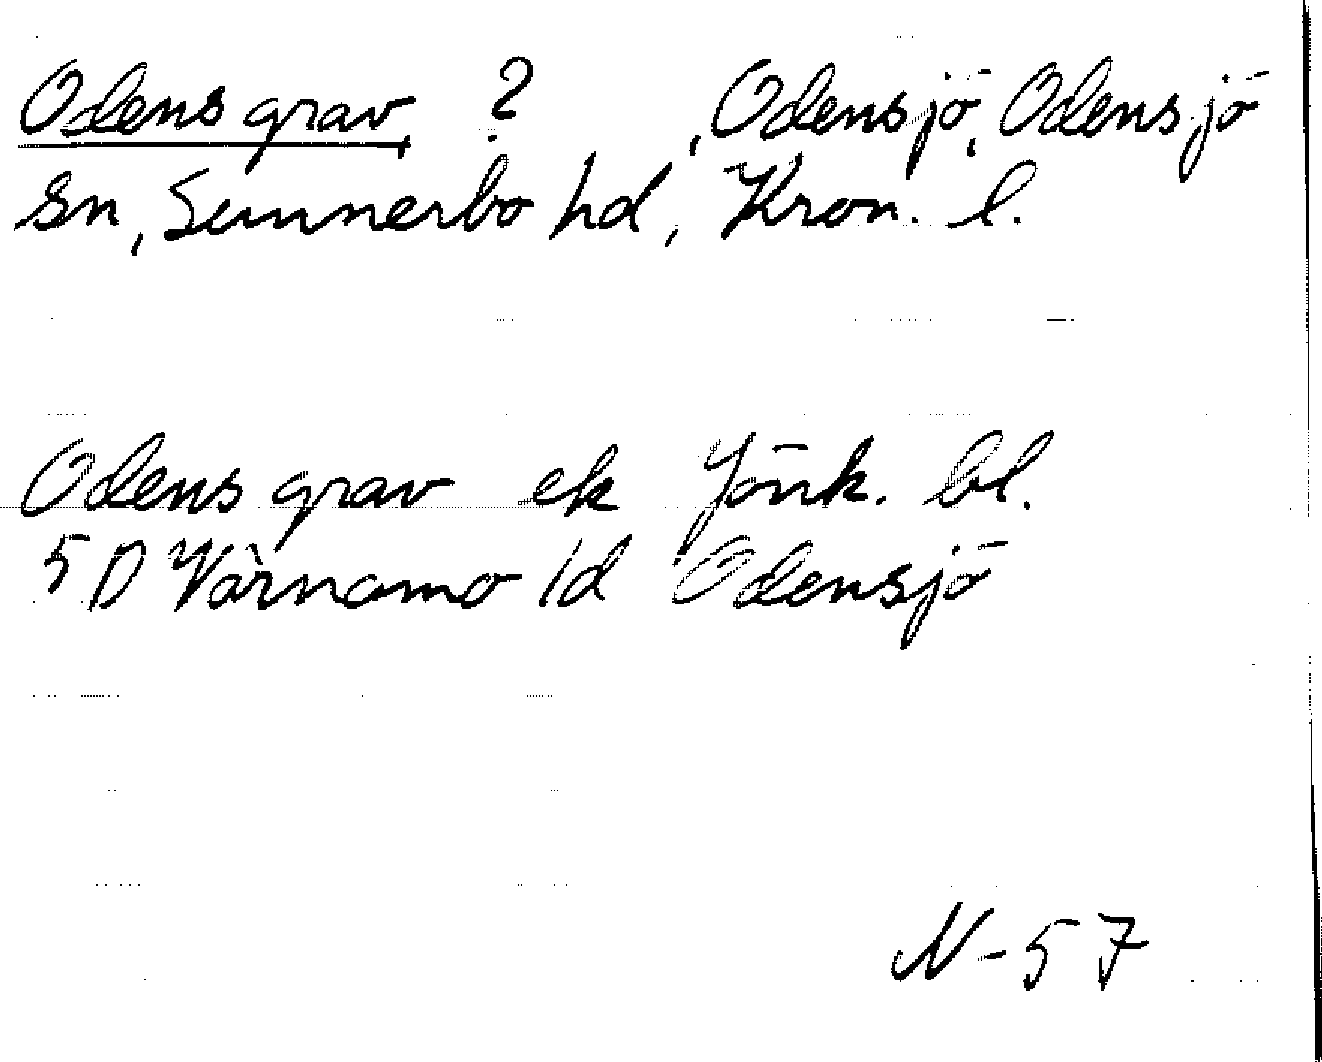 Odens grav, ? , Odensjö, Odensjö
sn, Sunnerbo hd, Kron. l.
Odens grav ek Jönk. bl.
5D Värnamo 1d Odensjö
N-57